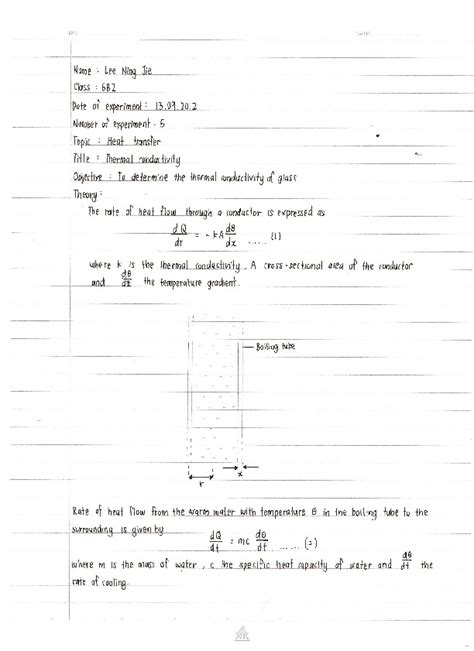 Name : Lee Ning Jie
Class : 6B2
Date of experiment : 13.09.202
Number of experiment : 5
Topic : Heat transfer
Title : Thermal conductivity
Objective : To determine the thermal conductivity of glass
Theory :
The rate of heat flow through a conductor is expressed as
dQ/dt = -kA dθ/dx ...... (1)
where k is the thermal conductivity, A cross-sectional area of the conductor
and dθ/dx the temperature gradient.
Boiling tube
r x
Rate of heat flow from the warm water with temperature θ in the boiling tube to the
surrounding is given by
dQ/dt = mc dθ/dt ...... (2)
where m is the mass of water, c the specific heat capacity of water and dθ/dt the
rate of cooling.